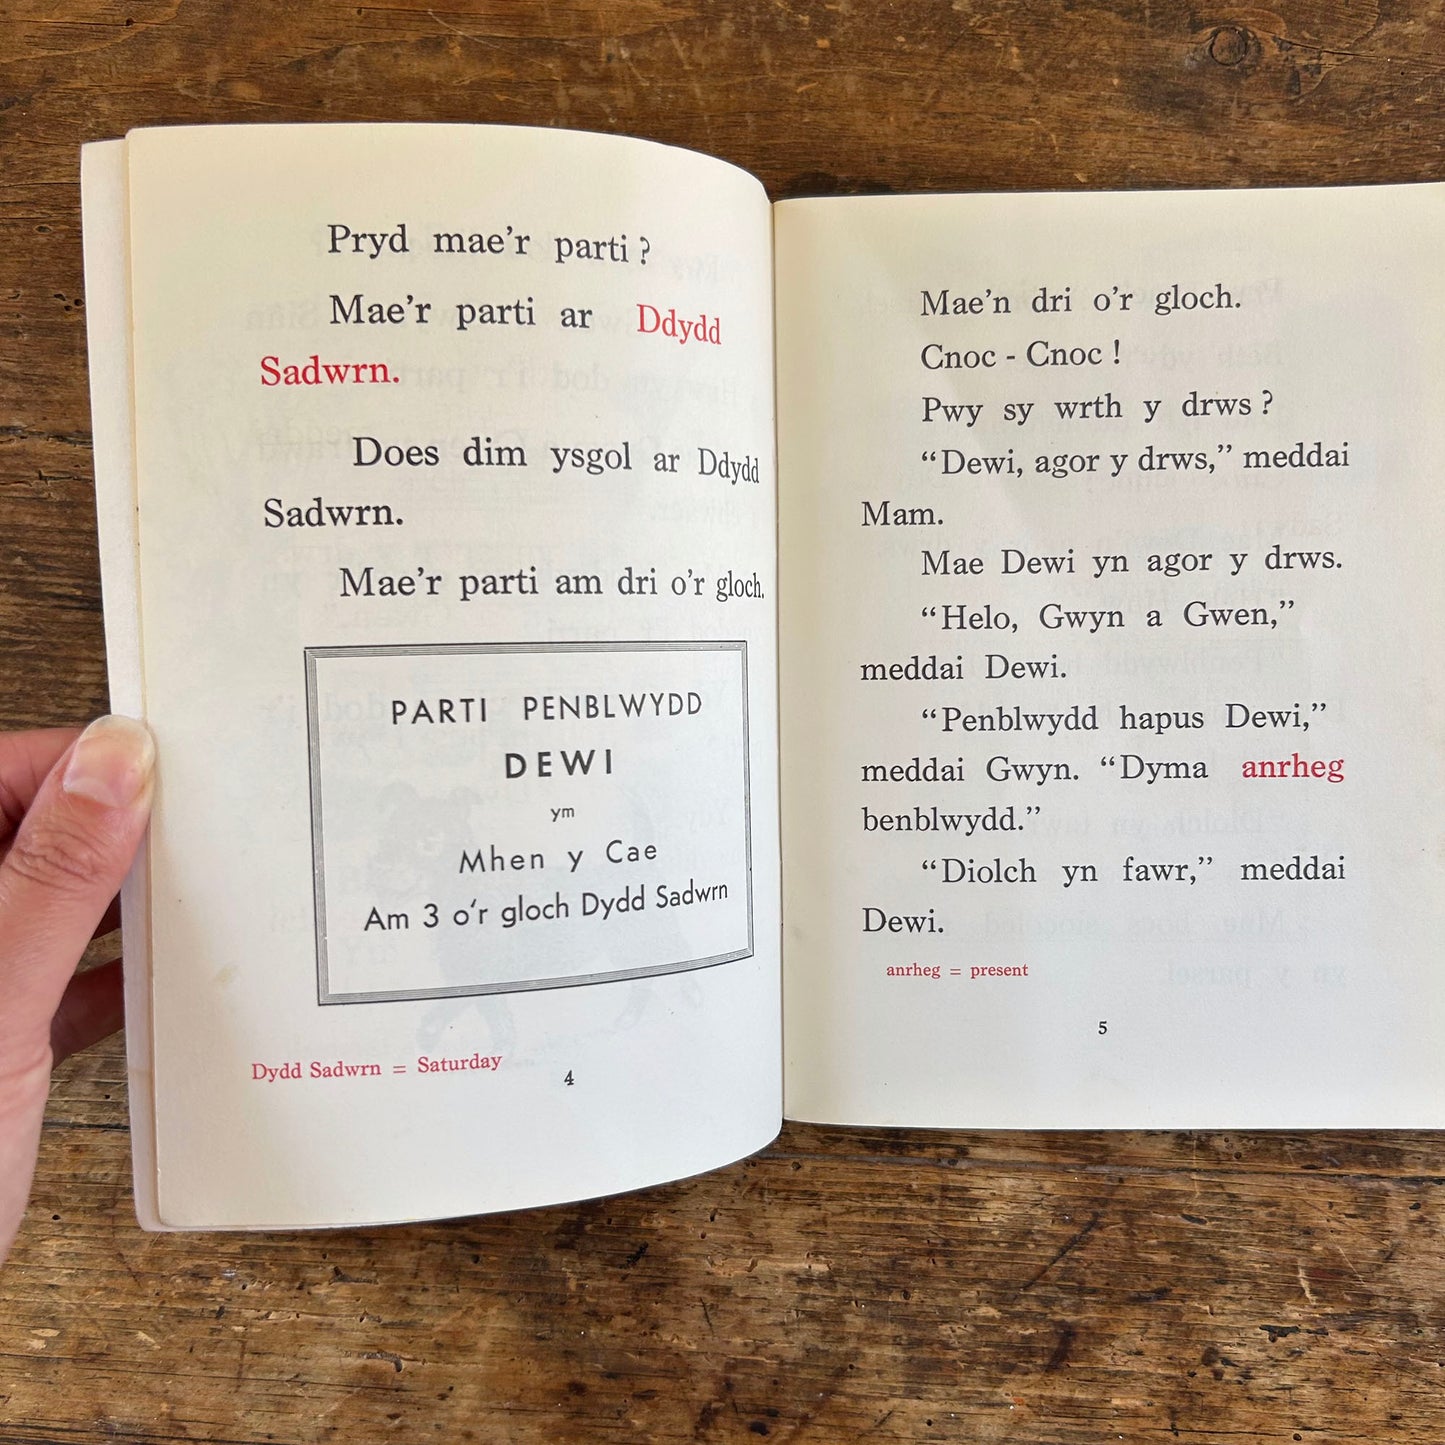 Pryd mae'r parti ?
Mae'r parti ar Ddydd
Sadwrn.
Does dim ysgol ar Ddydd
Sadwrn.
Mae'r parti am dri o'r gloch.
PARTI PENBLWYDD
DEWI
ym
Mhen y Cae
Am 3 o'r gloch Dydd Sadwrn
Dydd Sadwrn = Saturday
4
Mae'n dri o'r gloch.
Cnoc - Cnoc !
Pwy sy wrth y drws ?
“Dewi, agor y drws,” meddai
Mam.
Mae Dewi yn agor y drws.
“Helo, Gwyn a Gwen,”
meddai Dewi.
“Penblwydd hapus Dewi,”
meddai Gwyn. “Dyma anrheg
benblwydd.”
“Diolch yn fawr,” meddai
Dewi.
anrheg = present
5